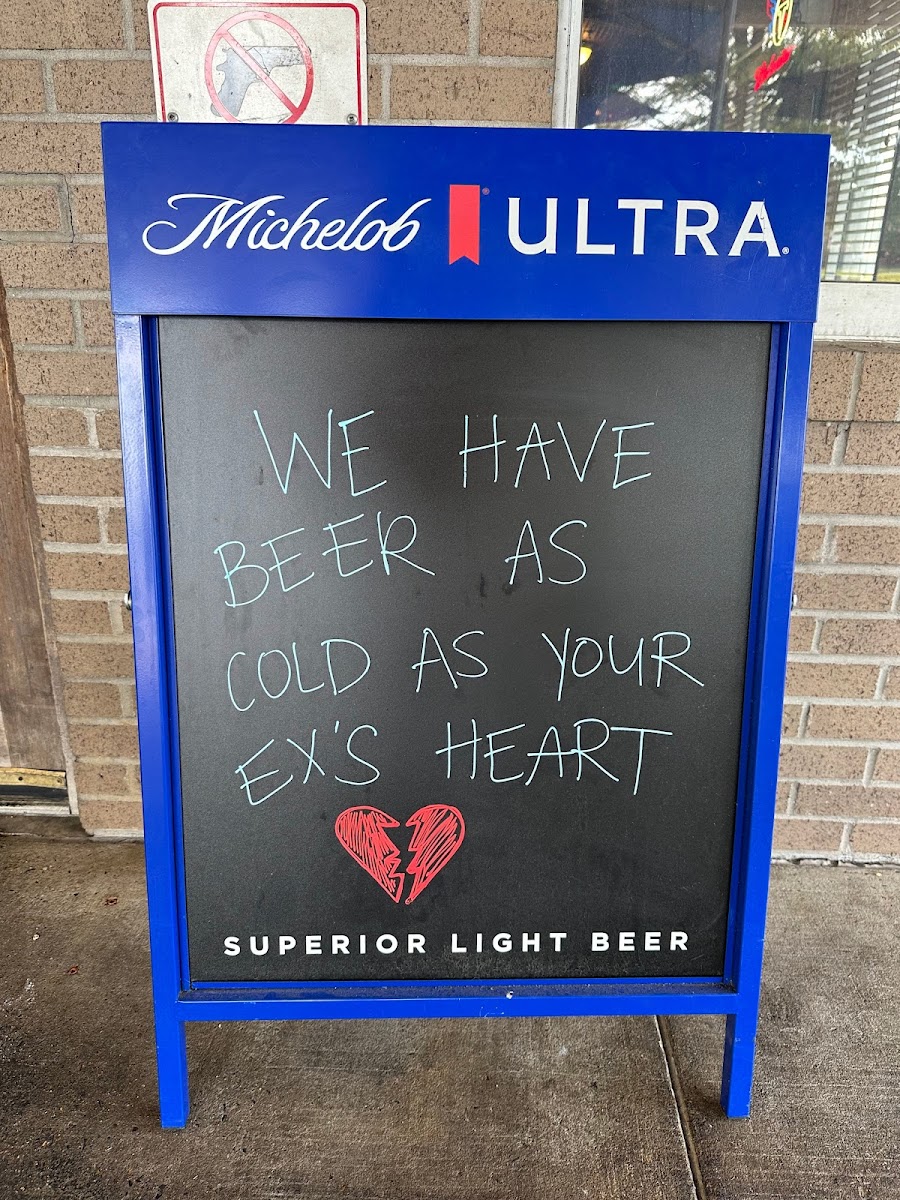 Michelob ULTRA
WE HAVE
BEER AS
COLD AS YOUR
EX'S HEART
SUPERIOR LIGHT BEER